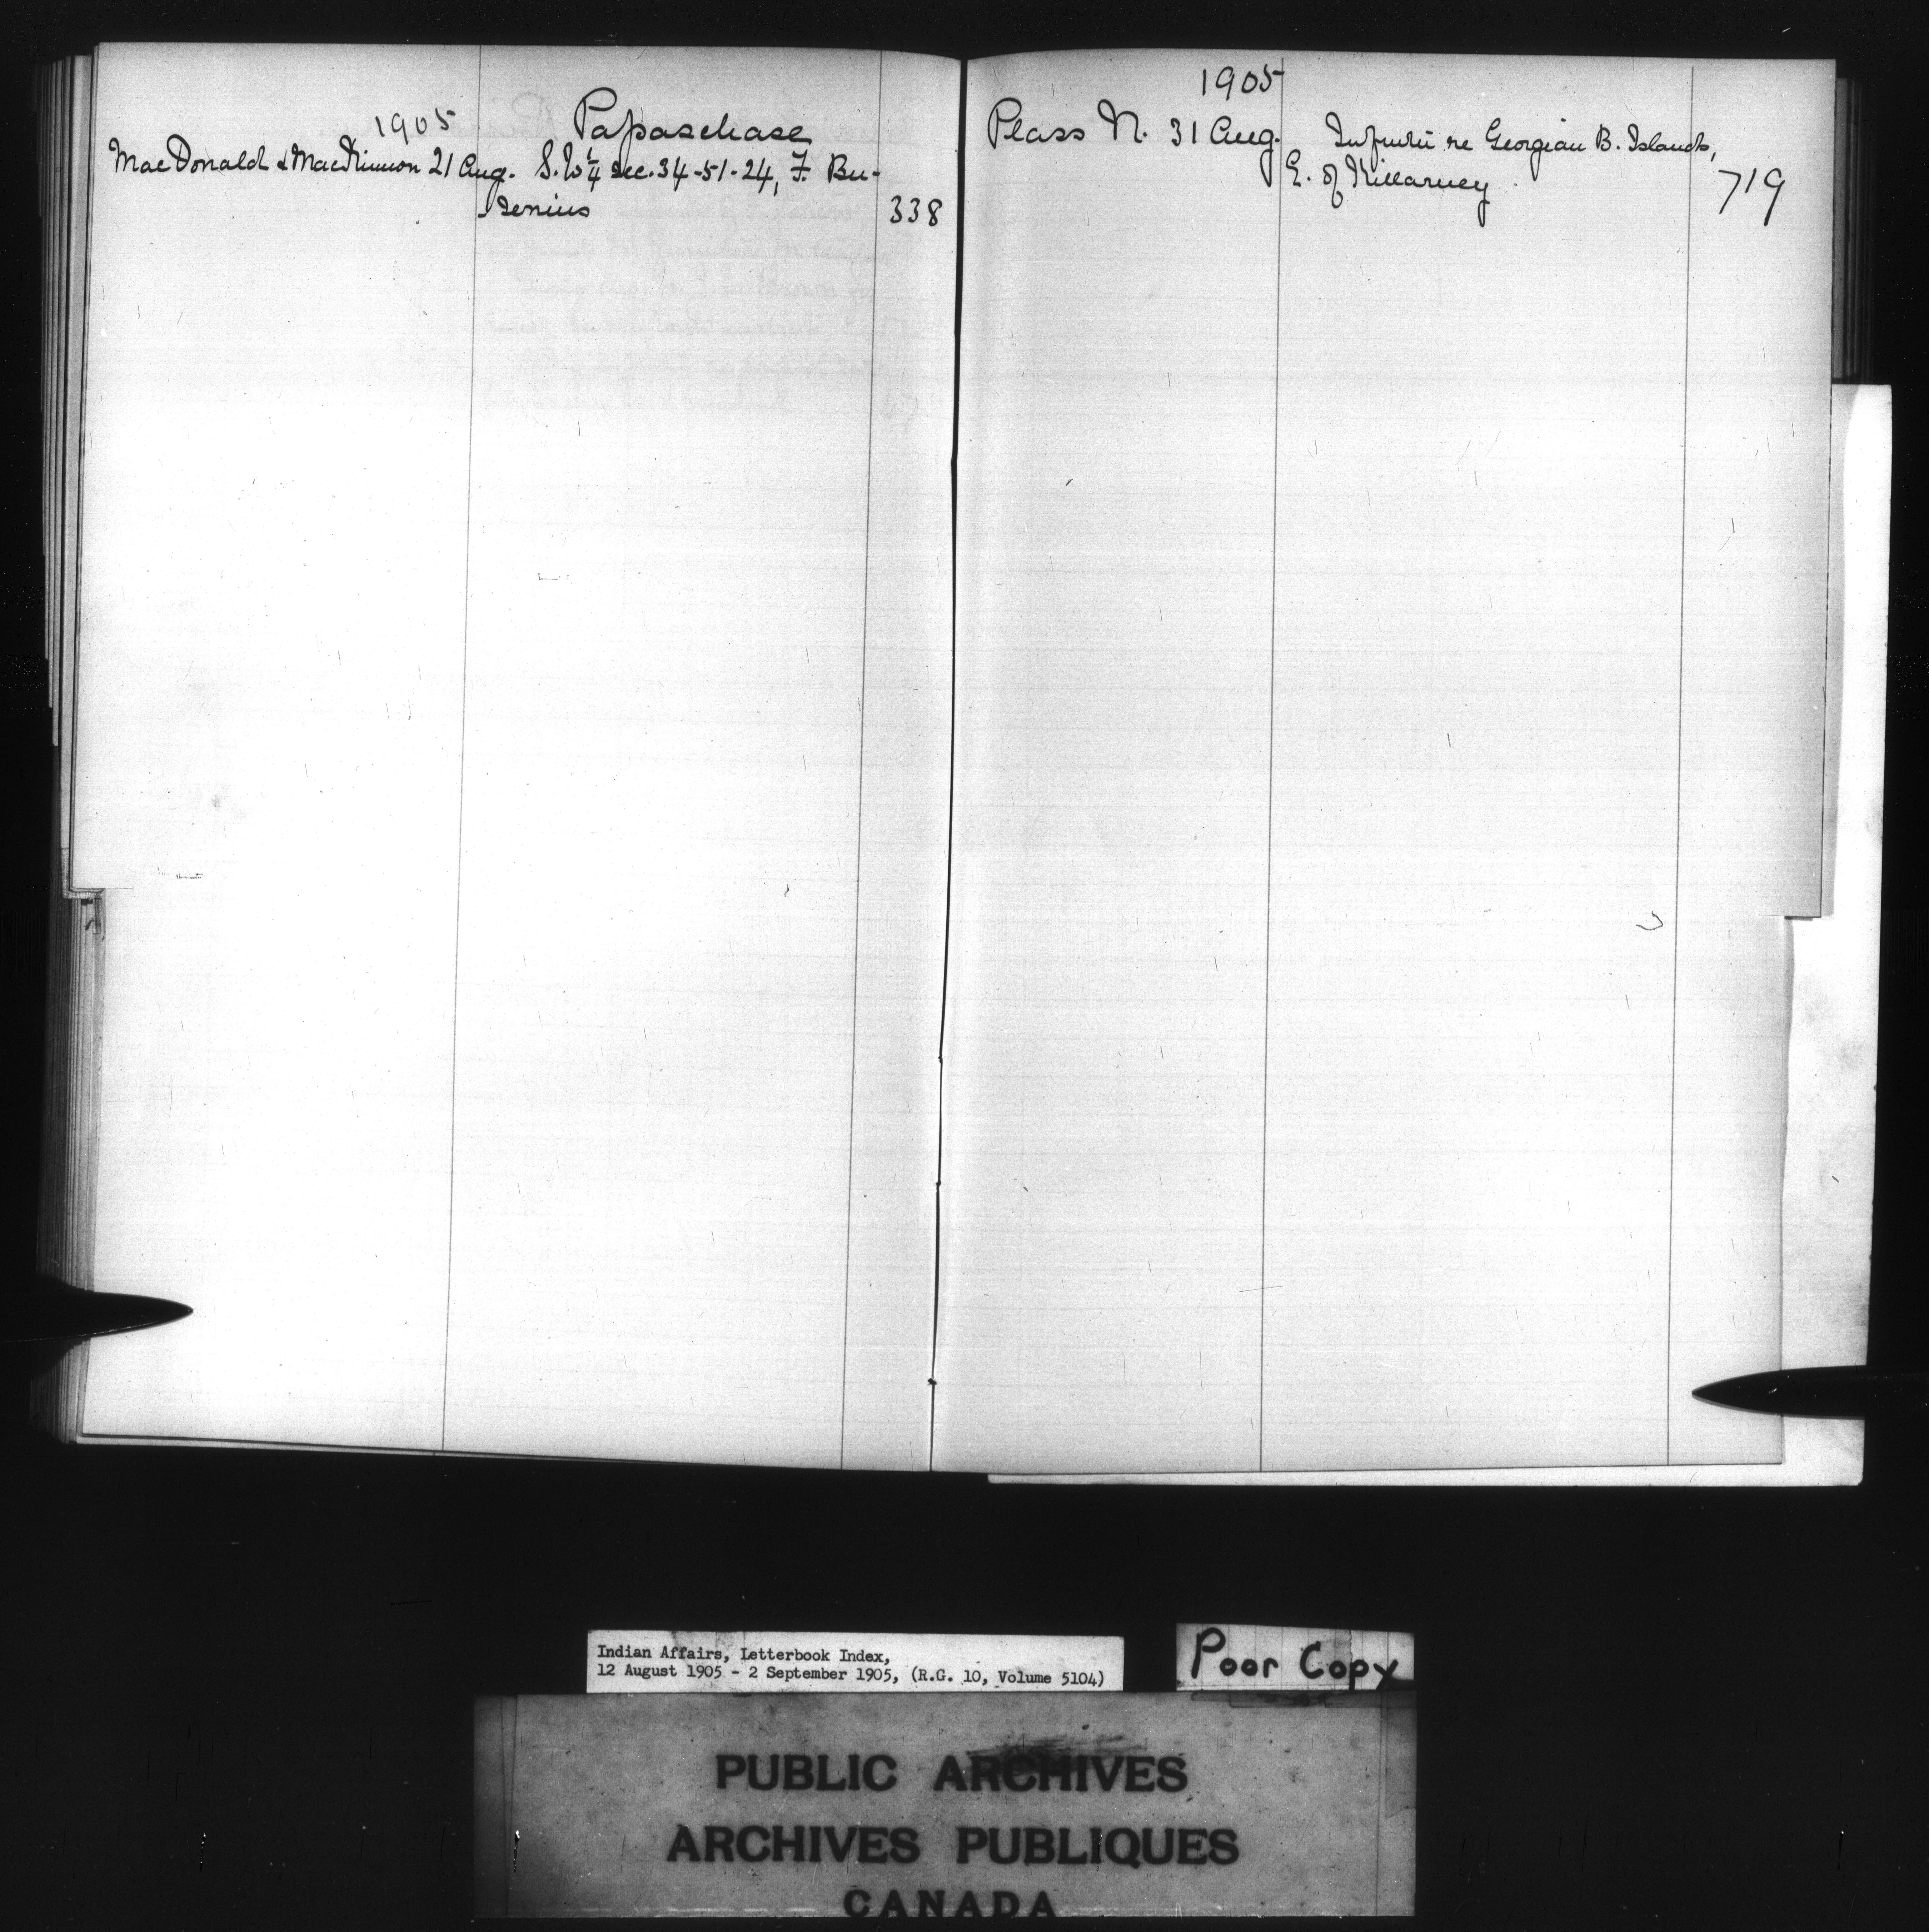 1905 Papaschase
MacDonald & MacKinnon 21 Aug. S.W 1/4 Sec. 34-51-24, F. Bu-
senius 338
1905
Plass N. 31 Aug. Infmtn re Georgian B. Islands,
E. of Killarney 719
Indian Affairs, Letterbook Index,
12 August 1905 - 2 September 1905, (R.G. 10, Volume 5104)
Poor Copy
PUBLIC ARCHIVES
ARCHIVES PUBLIQUES
CANADA